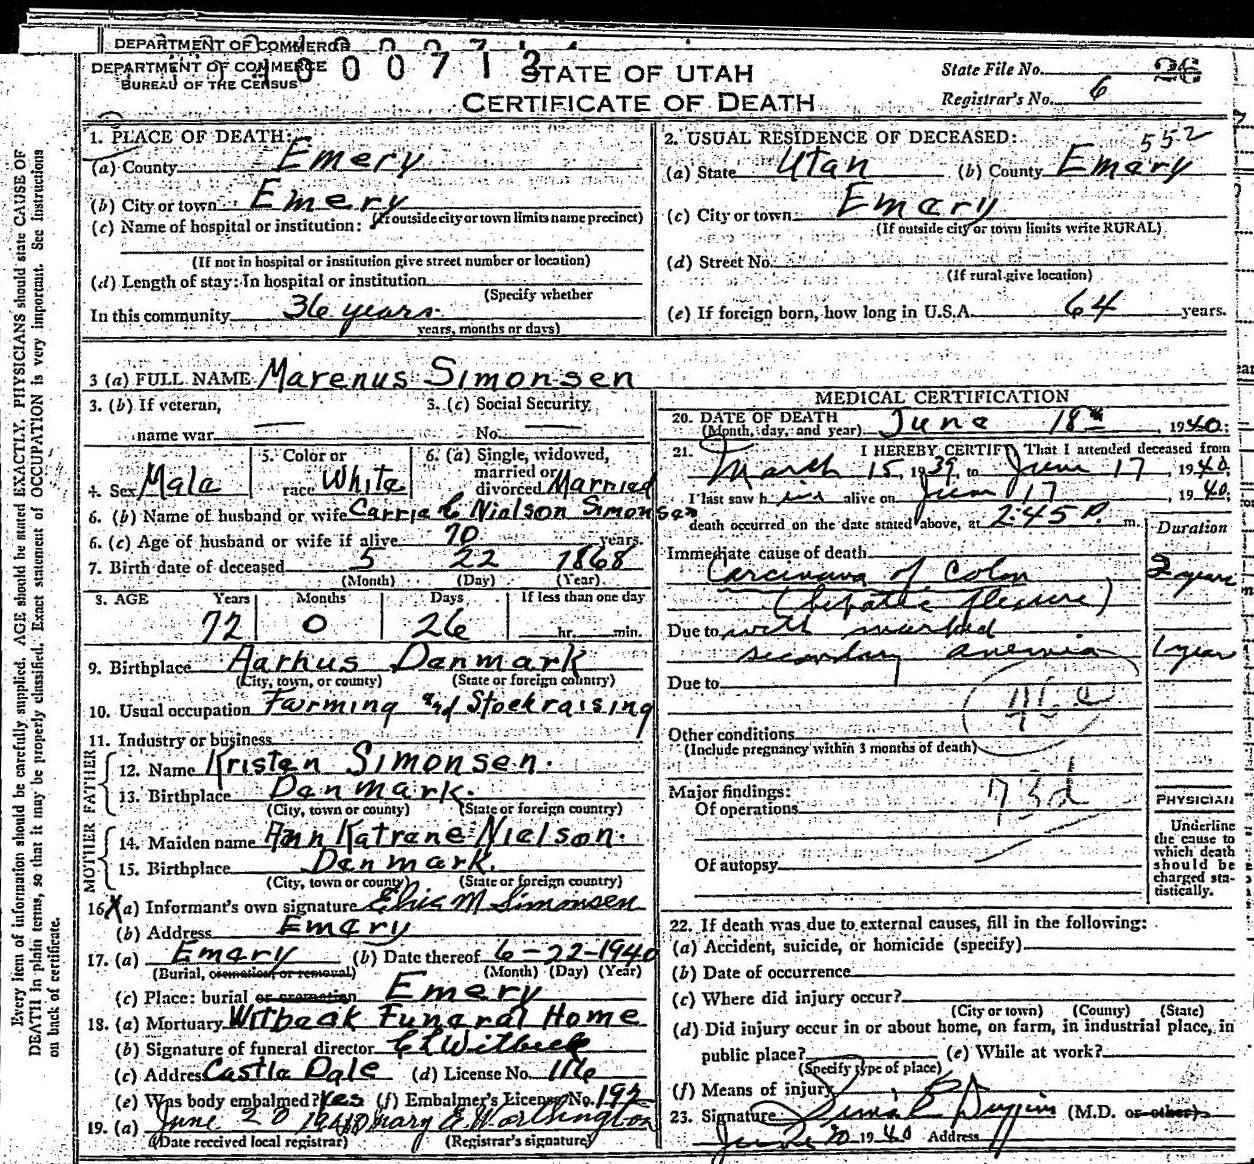 DEPARTMENT OF COMMERCE
DEPARTMENT OF COMMERCE
BUREAU OF THE CENSUS
000713
STATE OF UTAH
CERTIFICATE OF DEATH
State File No. 26
Registrar's No. 6
Every item of information should be carefully supplied. AGE should be stated EXACTLY. PHYSICIANS should state CAUSE OF
DEATH in plain terms, so that it may be properly classified. Exact statement of OCCUPATION is very important. See instructions
on back of certificate.
1. PLACE OF DEATH:
(a) County Emery
(b) City or town Emery
(If outside city or town limits name precinct)
(c) Name of hospital or institution:
(If not in hospital or institution give street number or location)
(d) Length of stay: In hospital or institution
(Specify whether
In this community 36 years
years, months or days)
2. USUAL RESIDENCE OF DECEASED: 552
(a) State Utah (b) County Emery
(c) City or town Emery
(If outside city or town limits write RURAL)
(d) Street No.
(If rural give location)
(e) If foreign born, how long in U.S.A. 64 years.
3 (a) FULL NAME Marenus Simonsen
3. (b) If veteran, 3. (c) Social Security
name war — No. —
4. Sex Male 5. Color or race White 6. (a) Single, widowed, married or divorced Married
6. (b) Name of husband or wife Carrie C Nielson Simonsen
6. (c) Age of husband or wife if alive 70 years.
7. Birth date of deceased 5 22 1868
(Month) (Day) (Year)
8. AGE Years Months Days If less than one day
72 0 26 hr. min.
9. Birthplace Aarhus Denmark
(City, town, or county) (State or foreign country)
10. Usual occupation Farming and Stockraising
11. Industry or business
FATHER
12. Name Kristen Simonsen.
13. Birthplace Denmark.
(City, town or county) (State or foreign country)
MOTHER
14. Maiden name Ann Katrene Nielson.
15. Birthplace Denmark.
(City, town or county) (State or foreign country)
16. (a) Informant's own signature M Simonsen
(b) Address Emery
17. (a) Emery (b) Date thereof 6-22-1940
(Burial, cremation or removal) (Month) (Day) (Year)
(c) Place: burial or cremation Emery
18. (a) Mortuary Witbeck Funeral Home
(b) Signature of funeral director C L Witbeck
(c) Address Castle Dale (d) License No. 116
(e) Was body embalmed? Yes (f) Embalmer's License No. 192
19. (a) June 20 1940 Mary E. Worthington
(Date received local registrar) (Registrar's signature)
MEDICAL CERTIFICATION
20. DATE OF DEATH
(Month, day, and year) June 18th, 1940;
21. I HEREBY CERTIFY That I attended deceased from
March 15, 1939, to June 17 1940
I last saw him alive on June 17, 1940;
death occurred on the date stated above, at 2:45 P. m.
Duration
Immediate cause of death
Carcinoma of Colon 2 years
(hepatic flexure)
Due to with marked
secondary anemia 1 year
Due to
46
Other conditions
(Include pregnancy within 3 months of death)
Major findings:
Of operations
73d
Of autopsy
PHYSICIAN
Underline
the cause to
which death
should be
charged sta-
tistically.
22. If death was due to external causes, fill in the following:
(a) Accident, suicide, or homicide (specify)
(b) Date of occurrence
(c) Where did injury occur?
(City or town) (County) (State)
(d) Did injury occur in or about home, on farm, in industrial place, in
public place? (e) While at work?
(Specify type of place)
(f) Means of injury
23. Signature (M.D. or other)
June 20 1940 Address